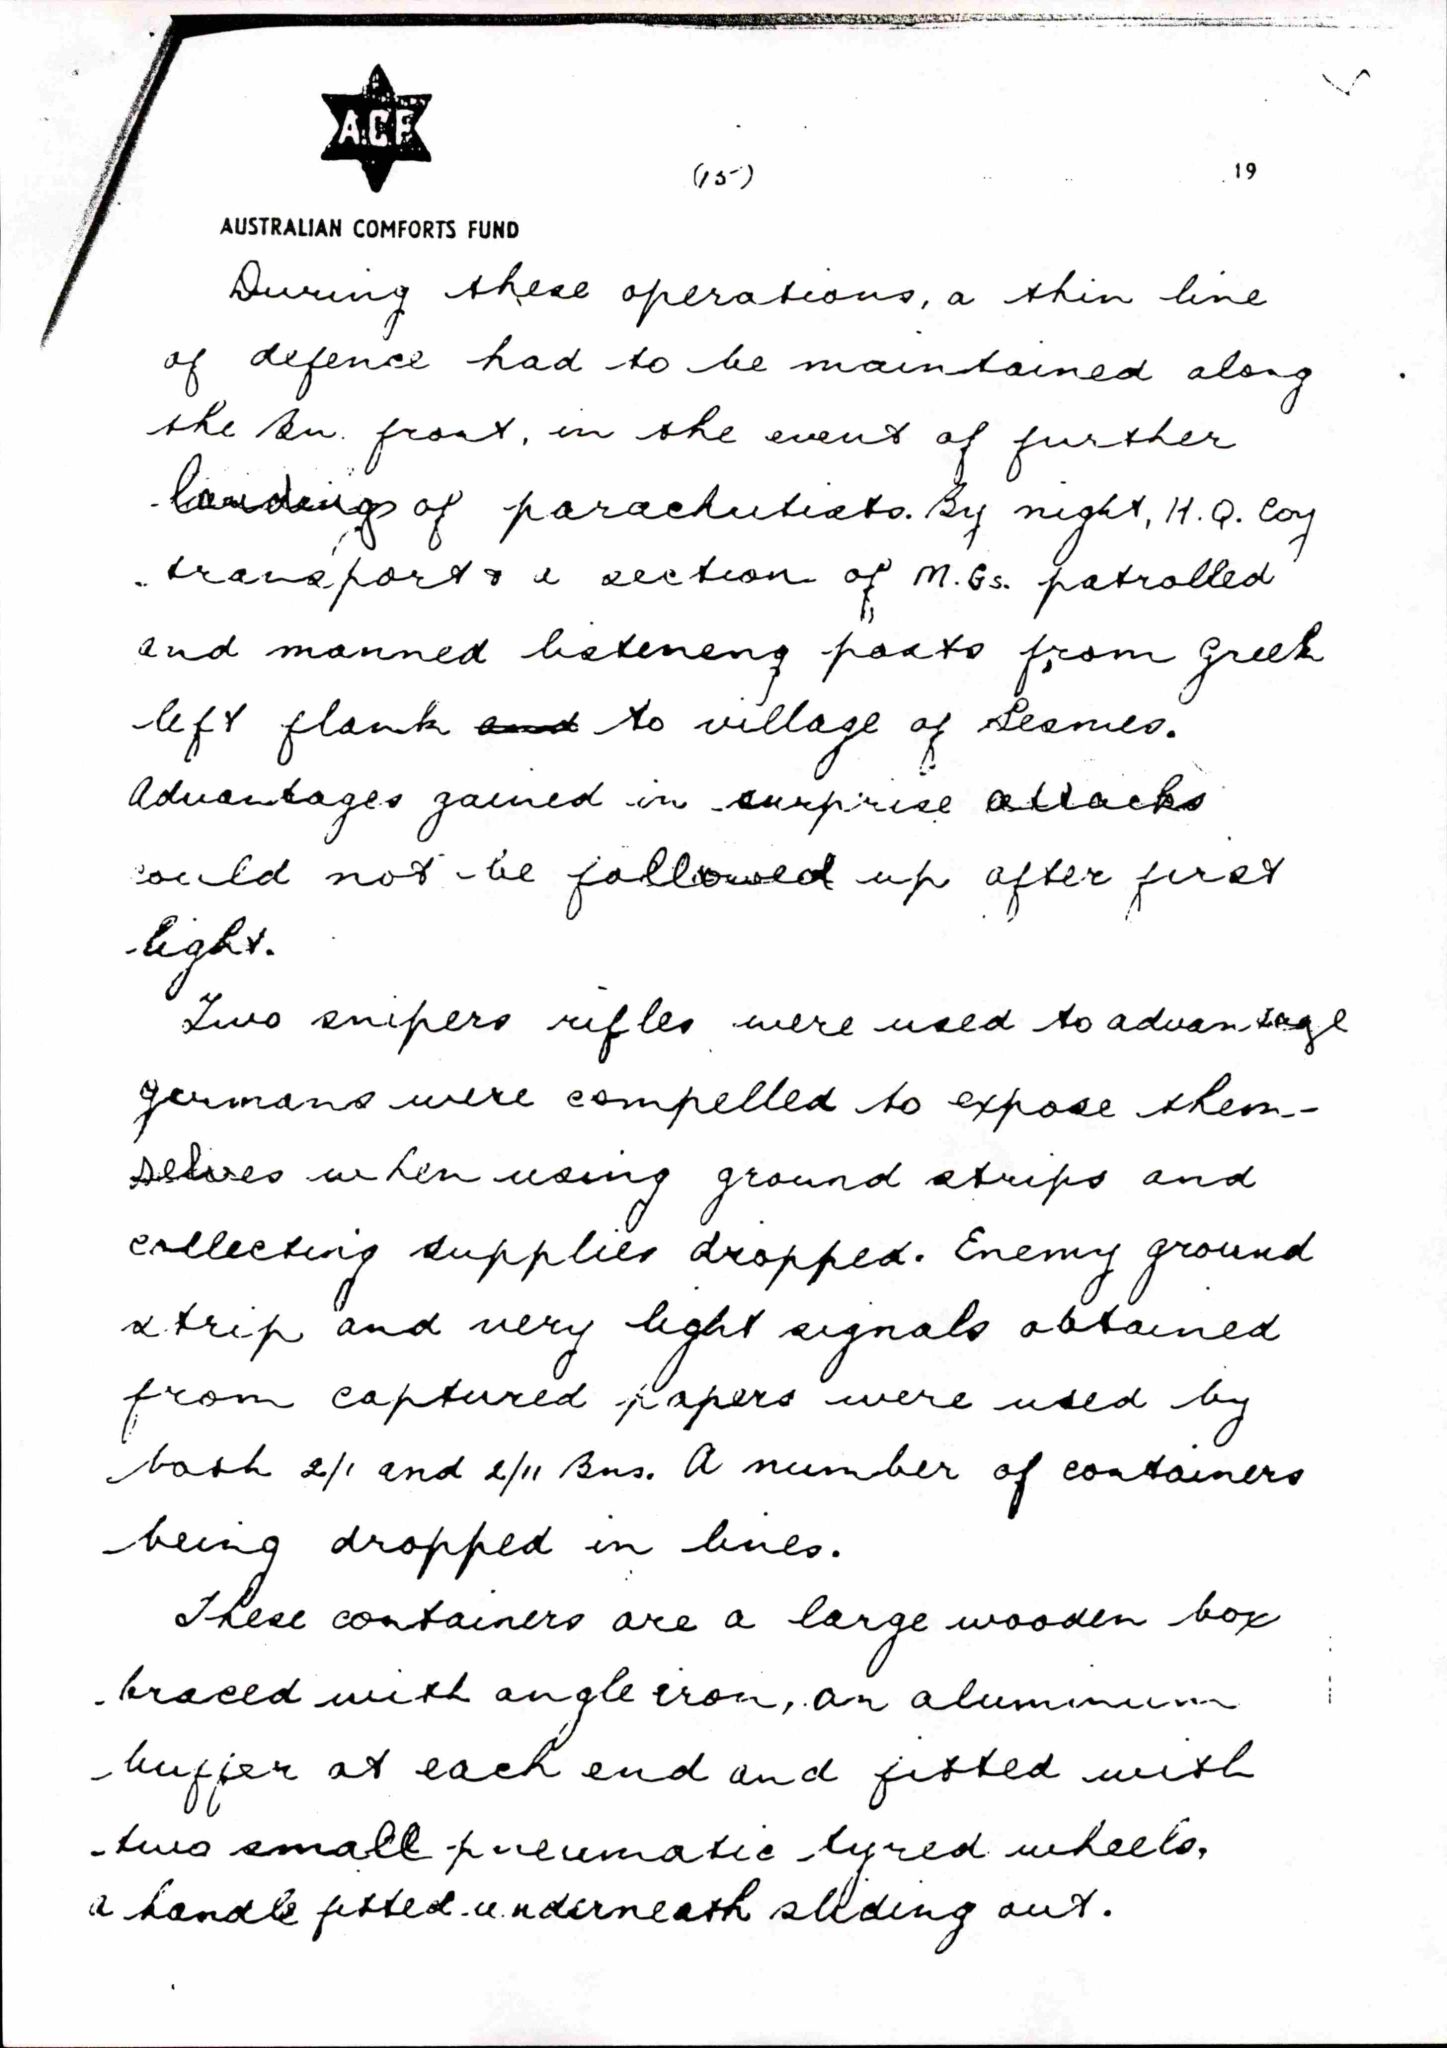 A.C.F
(15)
19
AUSTRALIAN COMFORTS FUND
During these operations, a thin line
of defence had to be maintained along
the Bn. front, in the event of further
landings of parachutists. By night, H.Q. Coy
transport & a section of M.Gs. patrolled
and manned listeneng posts from Greek
left flank and to village of Sesmes.
Advantages gained in surprise attacks
could not be followed up after first
light.
Two snipers rifles were used to advantage
Germans were compelled to expose them-
selves when using ground strips and
collecting supplies dropped. Enemy ground
strip and very light signals obtained
from captured papers were used by
both 2/1 and 2/11 Bns. A number of containers
being dropped in lines.
These containers are a large wooden box
braced with angle iron, an aluminum
buffer at each end and fitted with
two small pneumatic tyred wheels,
a handle fitted underneath sliding out.